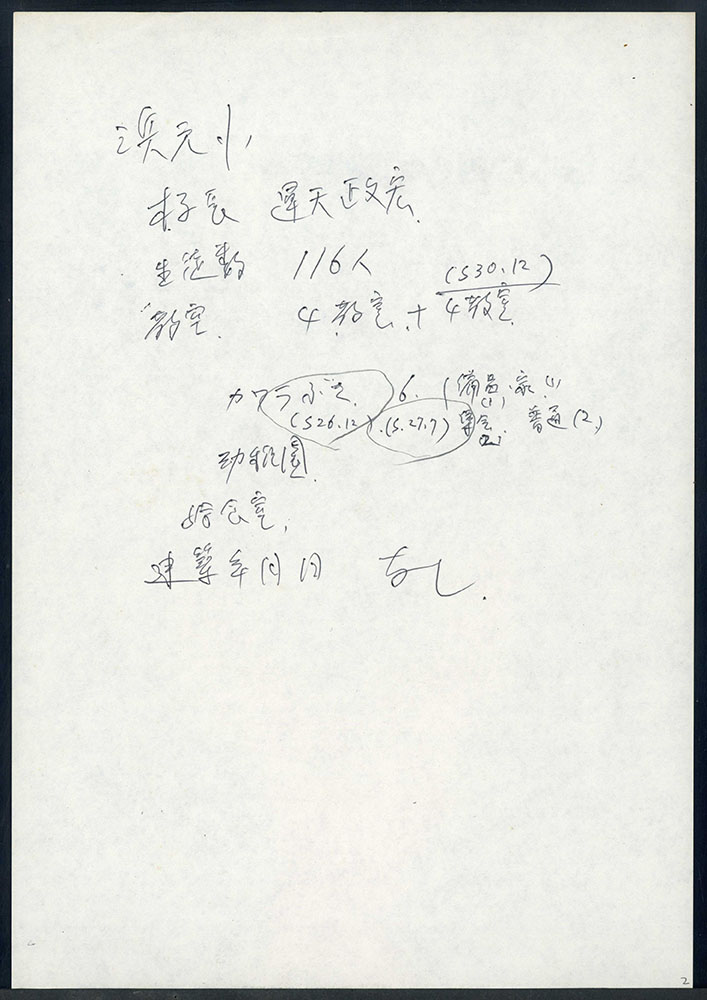 渓元小
校長 運天政宏
生徒数 116人
(S30.12)
教室. 4教室. + 4教室
カワラぶき. 6. (備品.家(1)
(1)
(S26.12).(S.27.7) 集会. 普通(2.)
(2)
幼稚園
給食室.
建築年月日 なし.
2